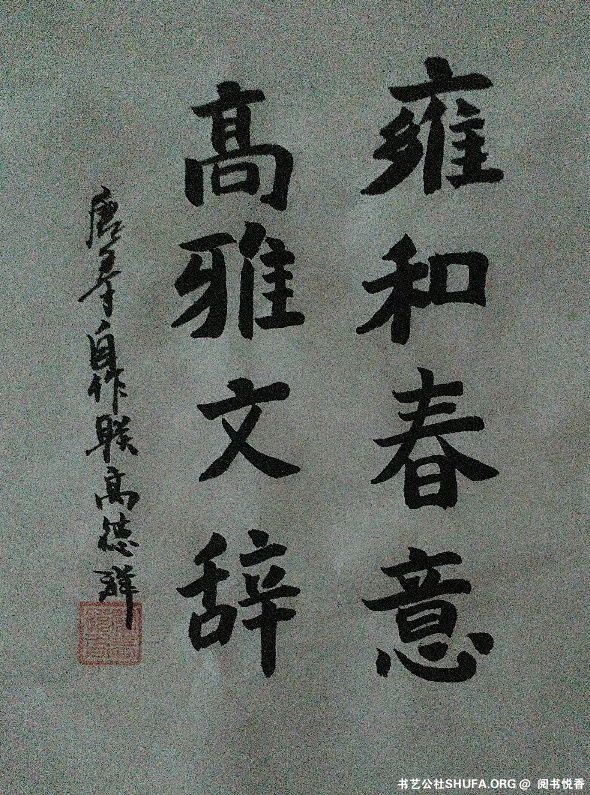 雍和春意
高雅文辞
唐峯自作联高德祥
书艺公社SHUFA.ORG @ 阅书悦香